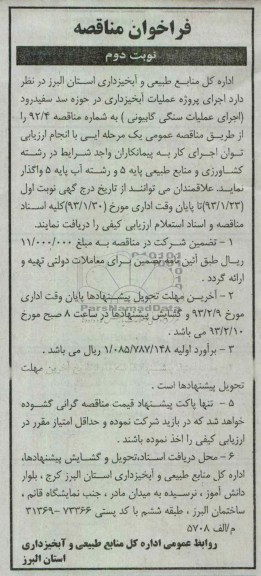 فراخوان مناقصه
نوبت دوم
اداره کل منابع طبیعی و آبخیزداری استان البرز در نظر
دارد اجرای پروژه عملیات آبخیزداری در حوزه سد سفیدرود
(اجرای عملیات سنگی گابیونی ) به شماره مناقصه ۹۲/۴ را
از طریق مناقصه عمومی یک مرحله ایی با انجام ارزیابی
توان اجرای کار به پیمانکاران واجد شرایط در رشته
کشاورزی و منابع طبیعی پایه ۵ و رشته آب پایه ۵ واگذار
نماید. علاقمندان می توانند از تاریخ درج گهی نوبت اول
(۹۳/۱/۲۳)تا پایان وقت اداری مورخ (۹۳/۱/۳۰)کلیه اسناد
مناقصه و اسناد استعلام ارزیابی کیفی را دریافت نمایند.
۱ - تضمین شرکت در مناقصه به مبلغ ۱۱/۰۰۰/۰۰۰
ریال طبق آئین نامه تضمین برای معاملات دولتی تهیه و
ارائه گردد .
۲ - آخرین مهلت تحویل پیشنهادها پایان وقت اداری
مورخ ۹۳/۲/۹ و گشایش پیشنهادها در ساعت ۸ صبح مورخ
۹۳/۲/۱۰ می باشد .
۳ - برآورد اولیه ۱/۰۸۵/۷۸۷/۱۴۸ ریال می باشد .
مهلت
تحویل پیشنهادها است .
۵ - تنها پاکت پیشنهاد قیمت مناقصه گرانی گشوده
خواهد شد که در بازید شرکت نموده و حداقل امتیاز مقرر در
ارزیابی کیفی را اخذ نموده باشند .
۶ - محل دریافت اسناد،تحویل و گشایش پیشنهادها،
اداره کل منابع طبیعی و آبخیزداری استان البرز کرج ، بلوار
دانش آموز ، نرسیده به میدان مادر ، جنب نمایشگاه قائم ،
ساختمان البرز ، طبقه ششم با کد پستی ۷۳۳۶۶ -۳۱۳۶۹
م/الف ۵۷۰۸
روابط عمومی اداره کل منابع طبیعی و آبخیزداری
استان البرز